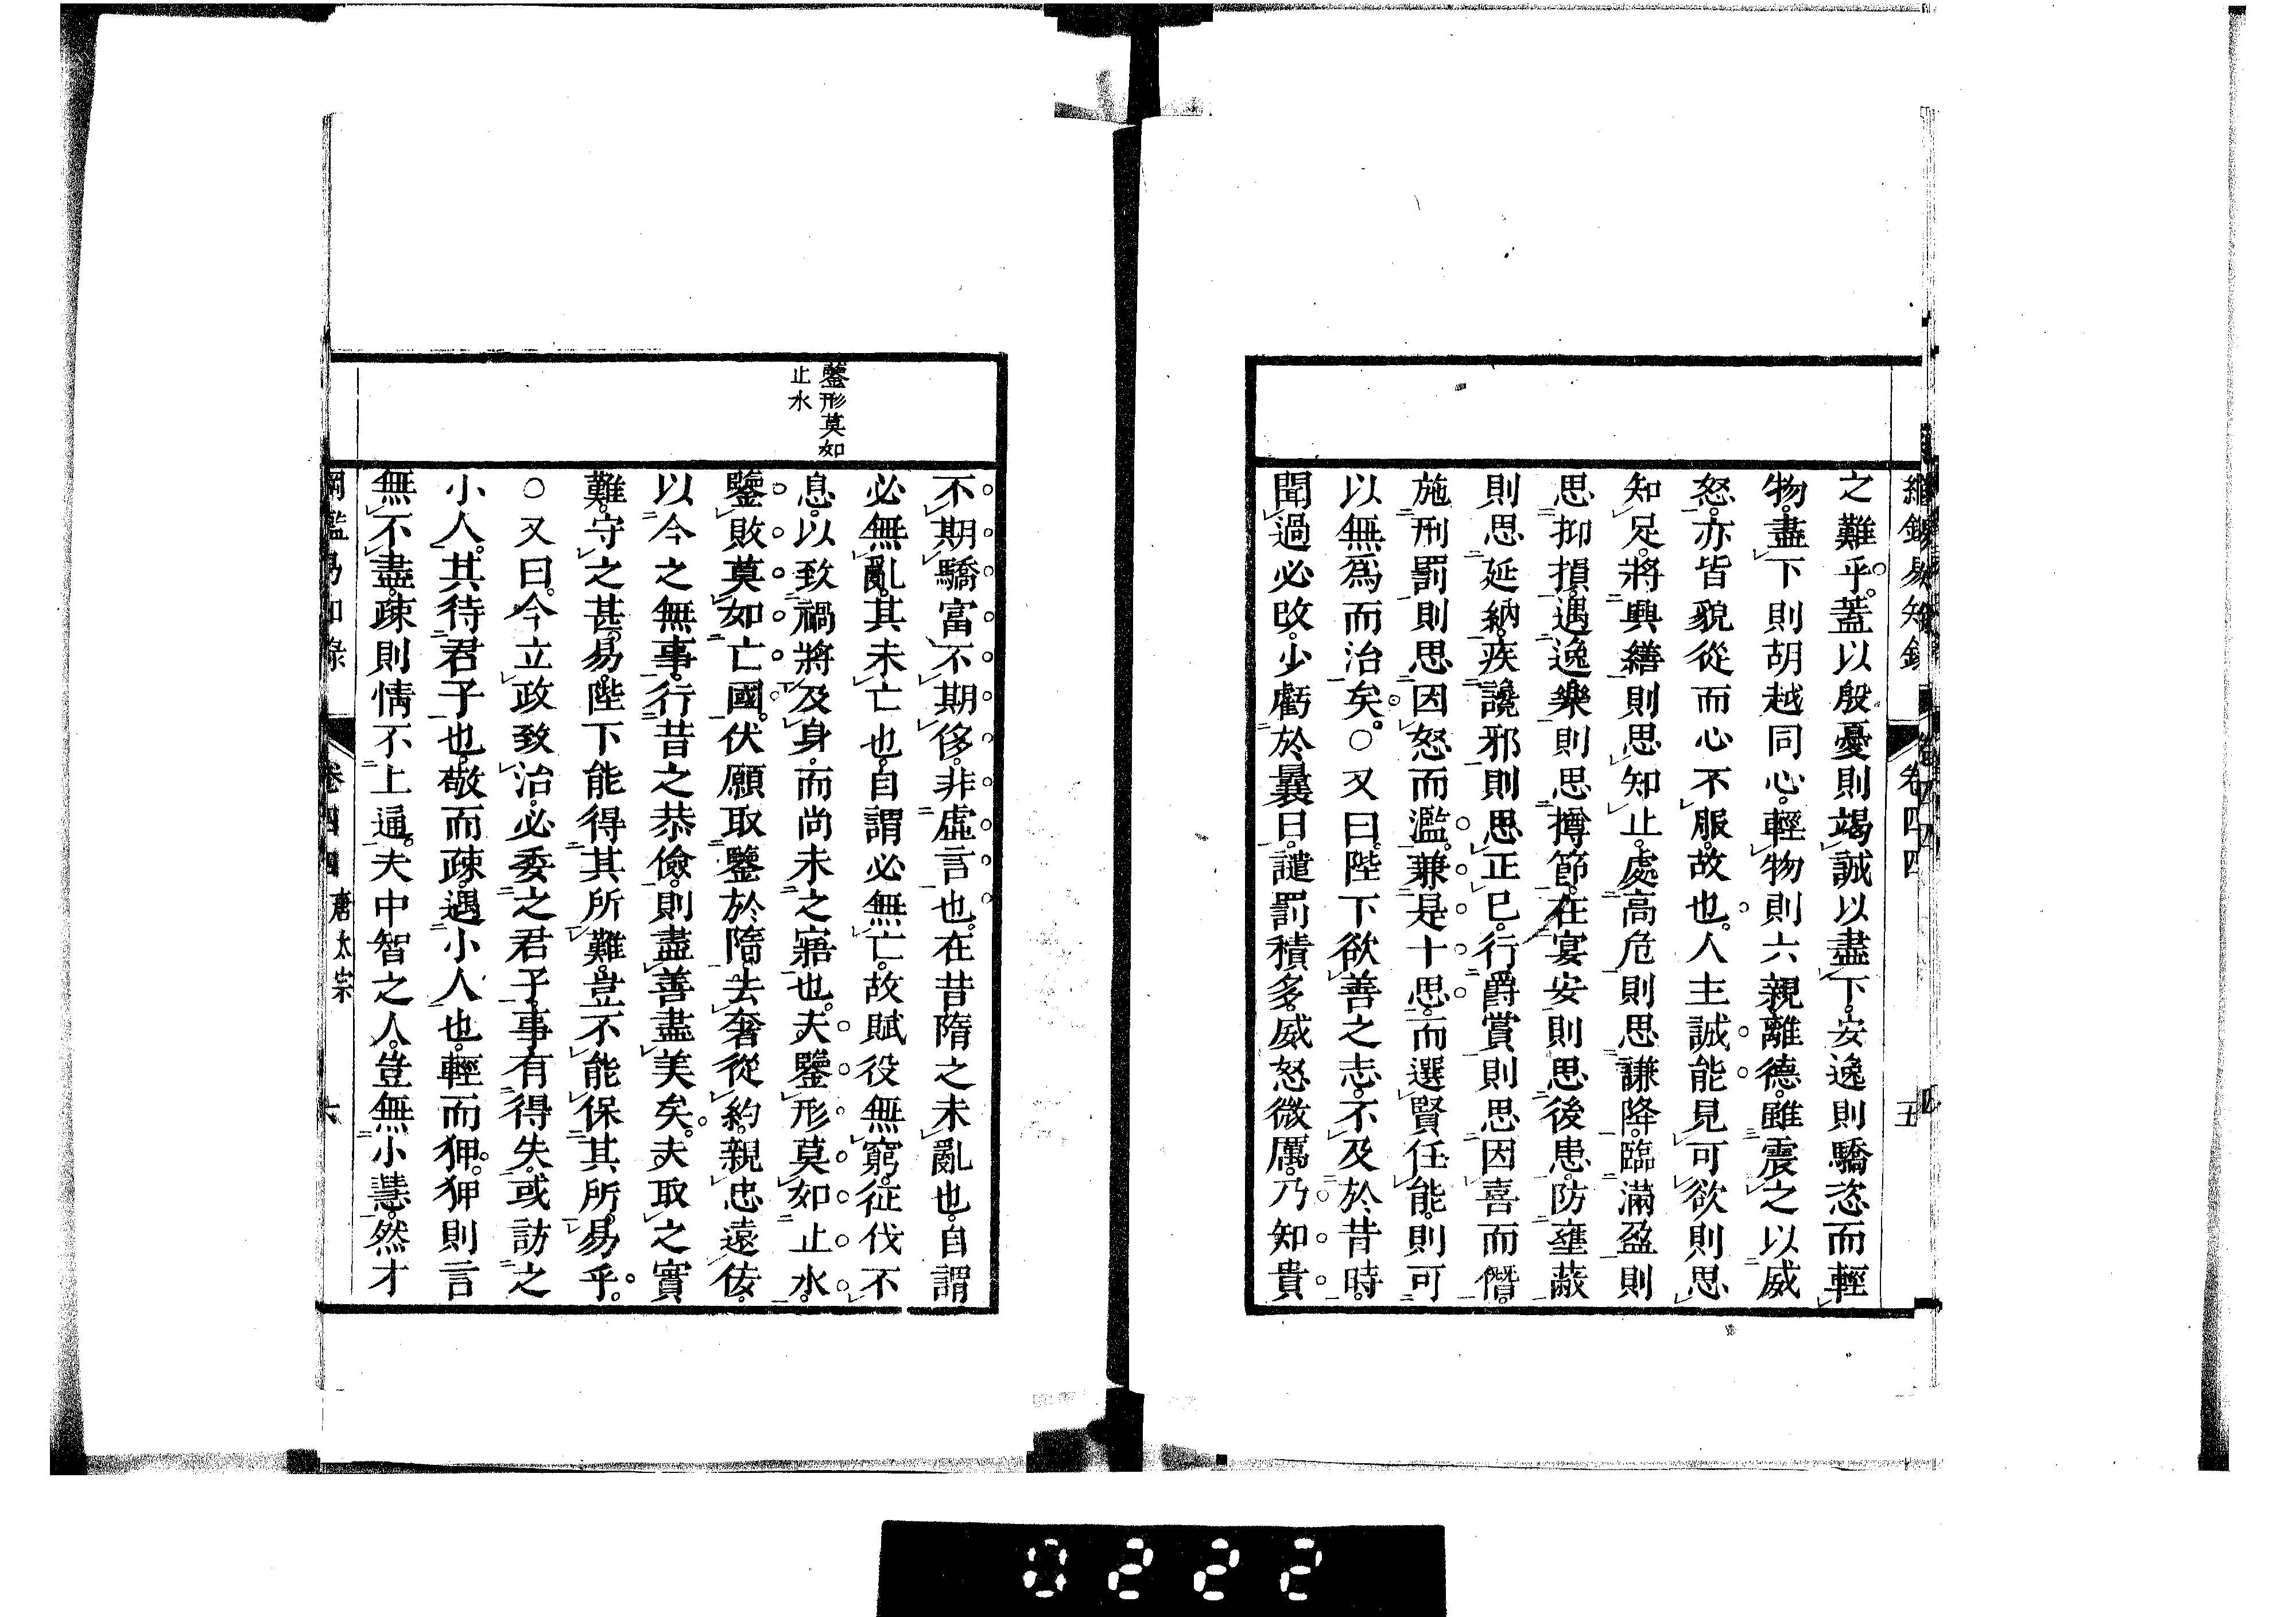 之難乎。蓋以殷憂則竭誠以盡下。安逸則驕恣而輕
物。盡下則胡越同心。輕物則六親離德。雖震之以威
怒。亦皆貌從而心不服。故也。人主誠能見可欲則思
知足。將興繕則思知止。處高危則思謙降。臨滿盈則
思抑損。遇逸樂則思撙節。在宴安則思後患。防壅蔽
則思延納。疾讒邪則思正己。行爵賞則思因喜而僭。
施刑罰則思因怒而濫。兼是十思。而選賢任能。則可
以無爲而治矣。○又曰。陛下欲善之志。不及於昔時。
聞過必改。少虧於曩日。譴罰積多。威怒微厲。乃知貴
鑒形莫如
止水
不期驕富不期侈。非虛言也。在昔隋之未亂也。自謂
必無亂。其未亡也。自謂必無亡。故賦役無窮。征伐不
息。以致禍將及身。而尚未之寤也。夫鑒形莫如止水。
鑒敗莫如亡國。伏願取鑒於隋。去奢從約。親忠遠佞。
以今之無事。行昔之恭儉。則盡善盡美矣。夫取之實
難。守之甚易。陛下能得其所難。豈不能保其所易乎。
○又曰。今立政致治。必委之君子。事有得失。或訪之
小人。其待君子也。敬而疎。遇小人也。輕而狎。狎則言
無不盡。疎則情不上通。夫中智之人。豈無小慧。然才
卷四四 唐太宗 六